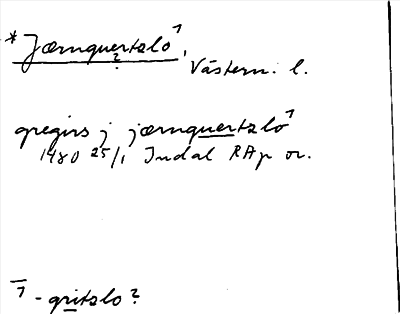 * Jærnquertzló¹, Västerm. l.
?
gregirs j jærnquertzló¹
1480 25/1 Indal RAp or.
1 - gritslo?